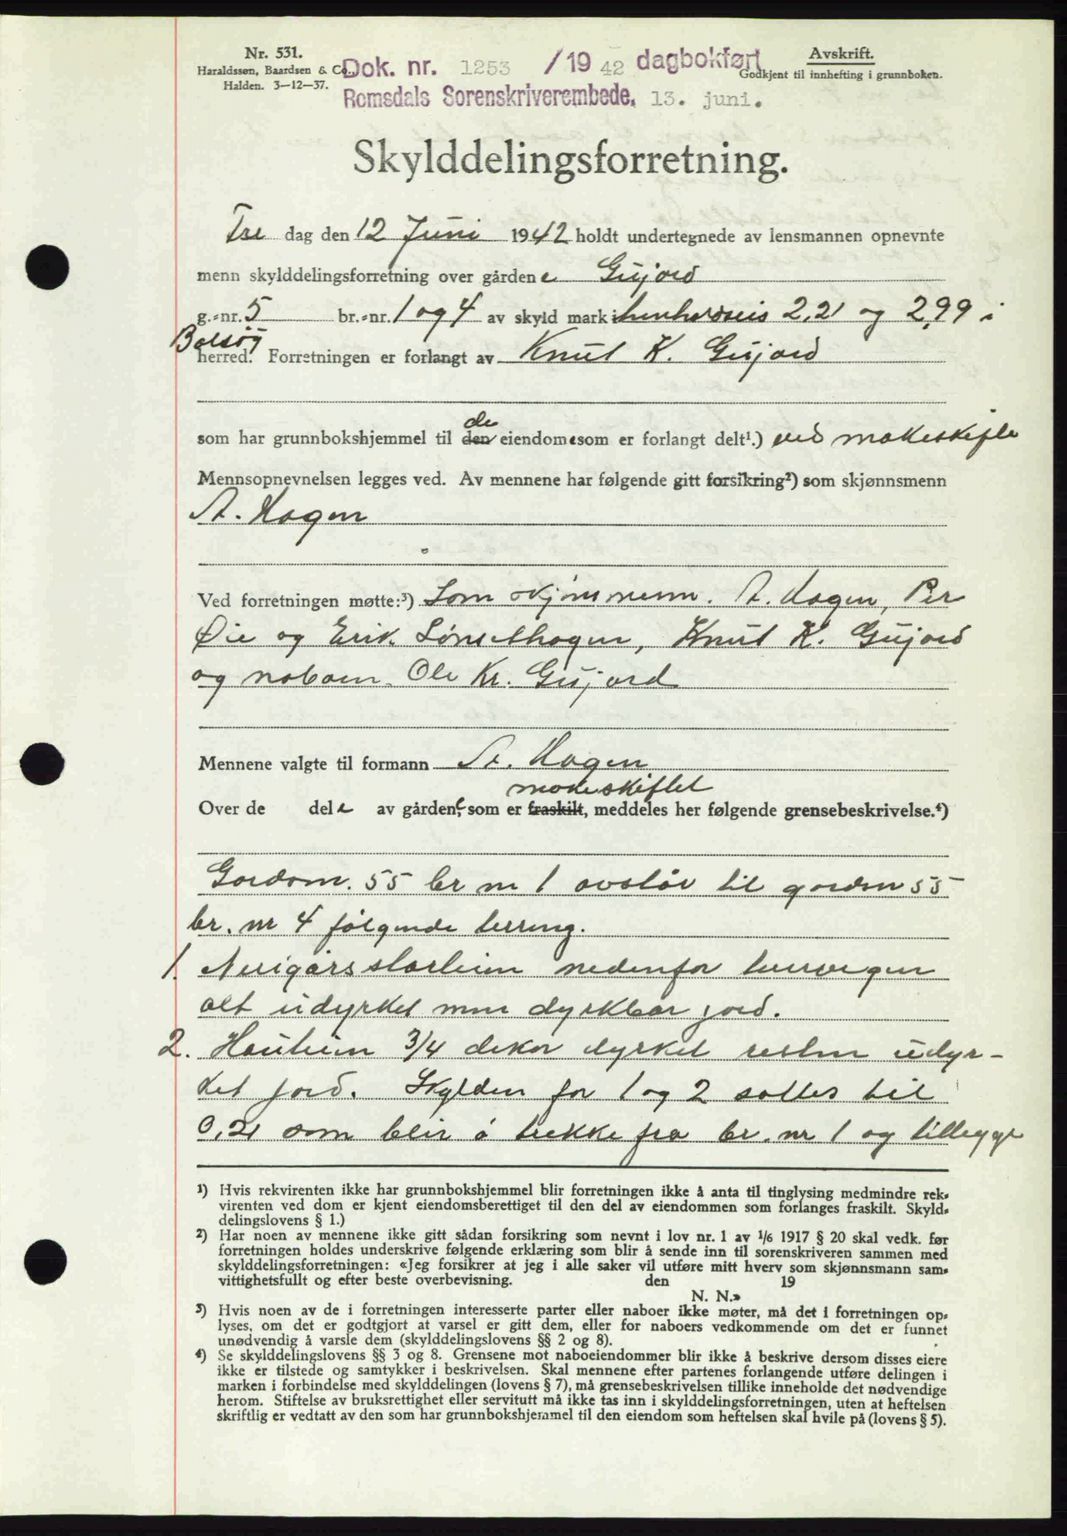 Nr. 531.
Haraldssen, Baardsen & Co.,
Halden. 3—12—37.
Dok. nr. 1253 /19 42 dagbokført
Romsdals Sorenskriverembede, 13. juni.
Avskrift.
Godkjent til innhefting i grunnboken.
Skylddelingsforretning.
Fre dag den 12 Juni 1942 holdt undertegnede av lensmannen opnevnte
menn skylddelingsforretning over gården e Gujord
g.-nr. 5 br.-nr. 1 og 4 av skyld mark henholdsvis 2,21 og 2,99 i
Bolsøy
herred. Forretningen er forlangt av Knut K. Gujord
som har grunnbokshjemmel til den de eiendom e som er forlangt delt¹.) ved makeskifte
Mennsopnevnelsen legges ved. Av mennene har følgende gitt forsikring²) som skjønnsmenn
A. Hagen
Ved forretningen møtte:³) Som skjønsmenn. A. Hagen, Per
Øie og Erik Sønsethagen, Knut K. Gujord
og naboen Ole Kr. Gujord
Mennene valgte til formann A. Hagen
makeskiftet
Over de del e av gården e som er fraskilt, meddeles her følgende grensebeskrivelse.⁴)
55 br nr 1 avstår til garden 55
br. nr 4 følgende terreng.
1. nedenfor
alt udyrket men dyrkbar jord.
2. 3/4 dekar dyrket resten udyr-
ket jord. Skylden for 1 og 2 settes til
0,21 som blir å trekke fra br. nr 1 og tillegge
¹) Hvis rekvirenten ikke har grunnbokshjemmel blir forretningen ikke å anta til tinglysing medmindre rek-
virenten ved dom er kjent eiendomsberettiget til den del av eiendommen som forlanges fraskilt. Skyld-
delingslovens § 1.)
²) Har noen av mennene ikke gitt sådan forsikring som nevnt i lov nr. 1 av 1/6 1917 § 20 skal vedk. før
forretningen holdes underskrive følgende erklæring som blir å sende inn til sorenskriveren sammen med
skylddelingsforretningen: «Jeg forsikrer at jeg i alle saker vil utføre mitt hverv som skjønnsmann sam-
vittighetsfullt og efter beste overbevisning. den 19
N. N.»
³) Hvis noen av de i forretningen interesserte parter eller naboer ikke møter, må det i forretningen op-
lyses, om det er godtgjort at varsel er gitt dem, eller for naboers vedkommende om det er funnet
unødvendig å varsle dem (skylddelingslovens §§ 2 og 8).
⁴) Se skylddelingslovens §§ 3 og 8. Grensene mot naboeiendommer blir ikke å beskrive dersom disses eiere
ikke er tilstede og samtykker i beskrivelsen. Skal mennene efter partenes forlangende utføre delingen i
marken i forbindelse med skylddelingen (lovens § 7), må grensebeskrivelsen tillike inneholde det nødvendige
herom. Stiftelse av bruksrettighet eller servitutt må ikke tas inn i skylddelingsforretningen, uten at heftelsen
skriftlig er vedtatt av den som har grunnbokshjemmel til den eiendom som heftelsen skal hvile på (lovens § 5).